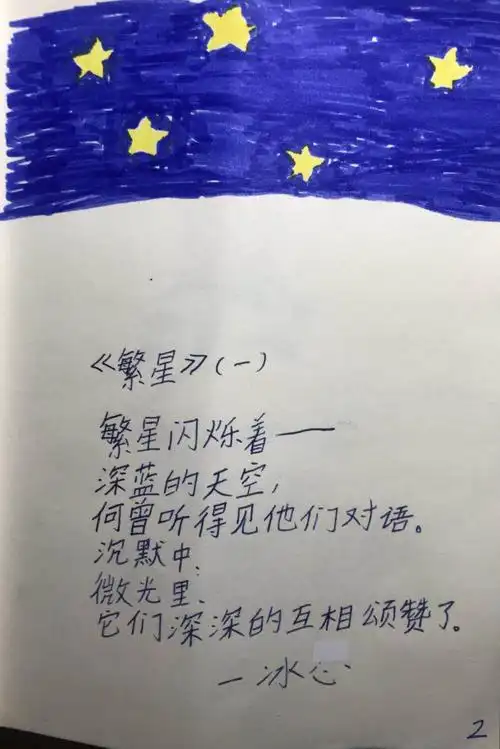 《繁星》(一)
繁星闪烁着——
深蓝的天空，
何曾听得见他们对语。
沉默中、
微光里、
它们深深的互相颂赞了。
一冰心
2